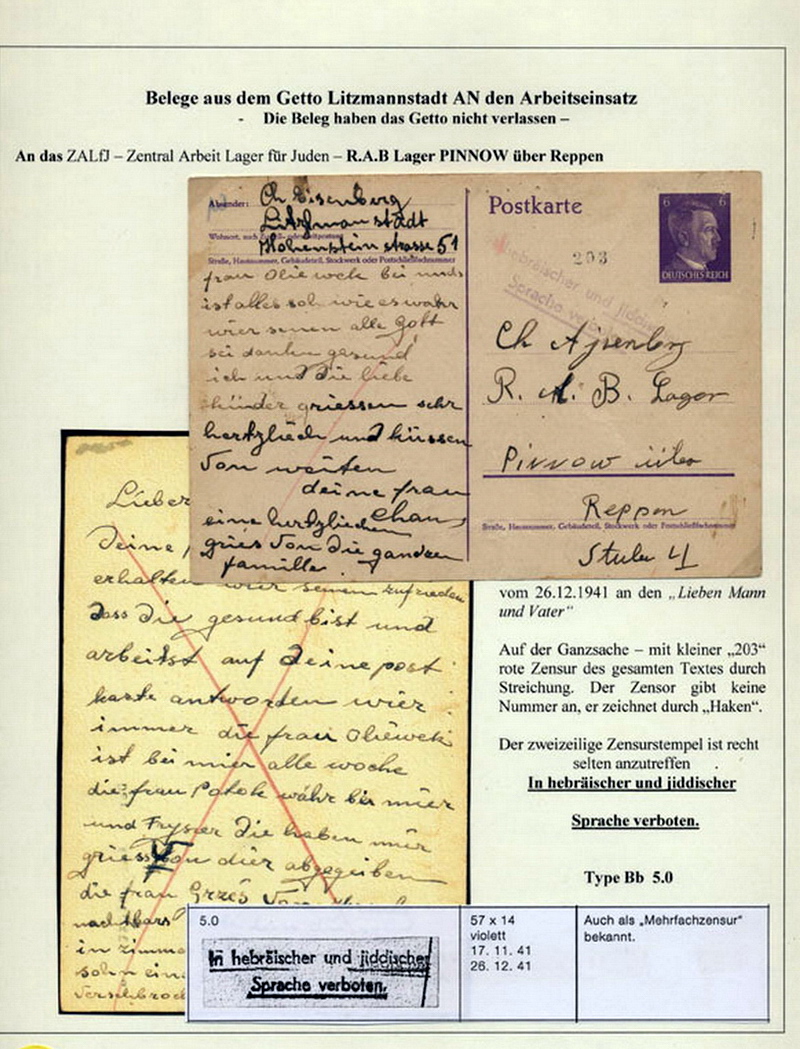 Belege aus dem Getto Litzmannstadt AN den Arbeitseinsatz
- Die Beleg haben das Getto nicht verlassen –
An das ZALfJ – Zentral Arbeit Lager für Juden – R.A.B Lager PINNOW über Reppen
Absender: Ch Eisenberg
Litzmanstadt
Hohenstein strasse 51
Straße, Hausnummer, Gebäudeteil, Stockwerk oder Postschließfachnummer
frau Oliewek bei unds
ist alles soh wie es wahr
wier senen alle Gott
sei danken gesund
ich und die liebe
kinder griessen sehr
hertzliech und küssen
von weiten
deine frau
Chan
eine hertzliechen
gries von die gandzen
familie.
Postkarte
6 6
DEUTSCHES REICH
203
hebräischer und jiddischer
Sprache verboten
Ch Ajzenberg
R. A. B. Lager
Pinnow über
Reppen
Straße, Hausnummer, Gebäudeteil, Stockwerk oder Postschließfachnummer
Stube 4
Lieber
Deine
erhalten wier senen zufrieden
dass die gesund bist und
arbeitst auf deine post
karte antworten wier
immer die frau Oliewek
ist bei mier alle woche
die frau Potok wahr bei mier
und Frysier die haben mir
griess von dier abgegeben
die frau Grzés
nachbars
in zimme
sohn ein
vom 26.12.1941 an den „Lieben Mann
und Vater“
Auf der Ganzsache – mit kleiner „203“
rote Zensur des gesamten Textes durch
Streichung. Der Zensor gibt keine
Nummer an, er zeichnet durch „Haken“.
Der zweizeilige Zensurstempel ist recht
selten anzutreffen .
In hebräischer und jiddischer
Sprache verboten.
Type Bb 5.0
5.0
In hebräischer und jiddischer
Sprache verboten.
57 x 14
violett
17. 11. 41
26. 12. 41
Auch als „Mehrfachzensur“
bekannt.